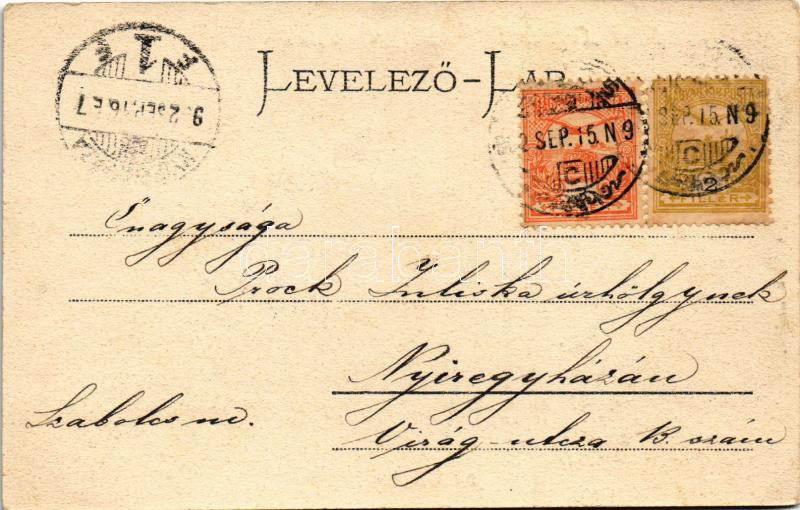 LEVELEZŐ-LAP
SEP. 15. N 9
SEP. 15. N 9
2
FILLÉR
9. 2 SEP. 16. E. 7
Őnagysága
Prock Juliska úrhölgynek
Nyiregyházán
Szabolcs m.
Virág-utcza B. szám
darabanth